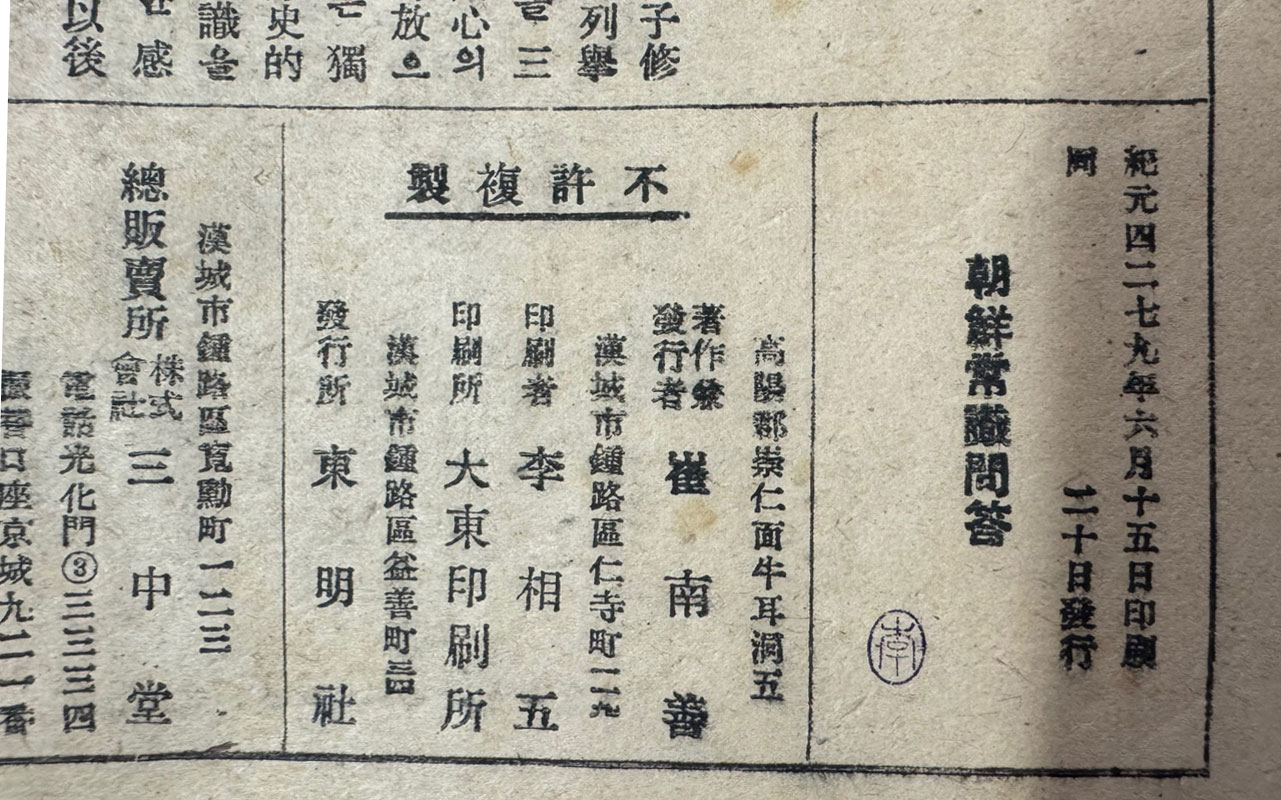 子修
列擧
을 三
心의
放으
는 獨
史的
識을
感
以後
紀元四二七九年六月十五日印刷
同 二十日發行
朝鮮常識問答
不許複製
高陽郡崇仁面牛耳洞五
著作兼發行者 崔南善
漢城市鍾路區仁寺町一一九
印刷者 李相五
印刷所 大東印刷所
漢城市鍾路區益善町三四
發行所 東明社
漢城市鍾路區寬勳町一二三
總販賣所 株式會社 三中堂
電話光化門③三三三四
口座京城九二一一番